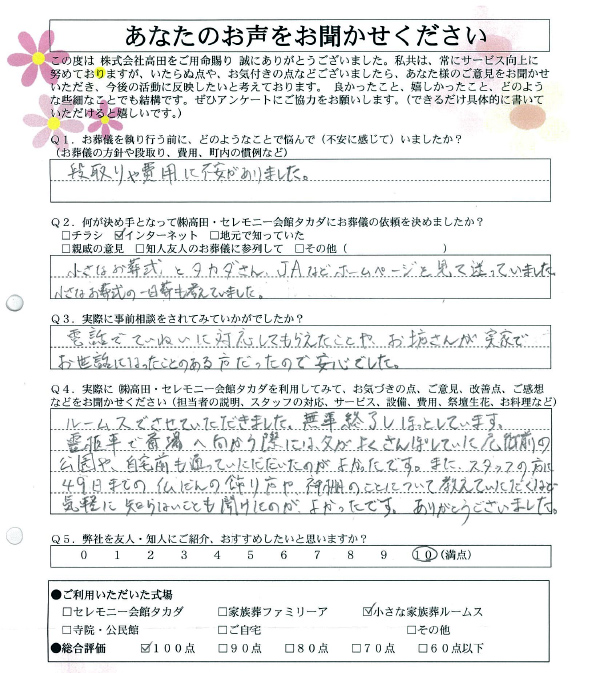 あなたのお声をお聞かせください
この度は 株式会社高田をご用命賜り 誠にありがとうございました。私共は、常にサービス向上に
努めておりますが、いたらぬ点や、お気付きの点などございましたら、あなた様のご意見をお聞かせ
いただき、今後の活動に反映したいと考えております。 良かったこと、嬉しかったこと、どのよう
な些細なことでも結構です。ぜひアンケートにご協力をお願いします。（できるだけ具体的に書いて
いただけると嬉しいです。）
Q１．お葬儀を執り行う前に、どのようなことで悩んで（不安に感じて）いましたか？
（お葬儀の方針や段取り、費用、町内の慣例など）
段取りや費用に不安がありました。
Q２．何が決め手となって㈱高田・セレモニー会館タカダにお葬儀の依頼を決めましたか？
□チラシ ☑インターネット □地元で知っていた
□親戚の意見 □知人友人のお葬儀に参列して □その他（ ）
小さなお葬式とタカダさん、JAなどホームページを見て迷っていました。
小さなお葬式の一日葬も考えていました。
Q３．実際に事前相談をされてみていかがでしたか？
電話でていねいに対応してもらえたことや、お坊さんが実家で
お世話になったことのある方だったので安心でした。
Q４．実際に ㈱高田・セレモニー会館タカダを利用してみて、お気づきの点、ご意見、改善点、ご感想
などをお聞かせください（担当者の説明、スタッフの対応、サービス、設備、費用、祭壇生花、お料理など）
ルームスでさせていただきました。無事終了しほっとしています。
霊柩車で斎場へ向かう際には、父がよくさんぽしていた尼御前の
公園や、自宅前も通っていただいたのがよかったです。また、スタッフの方に
49日までの仏だんの飾り方や、神棚のことについて教えていただくなど
気軽に知らないことも聞けたのがよかったです。ありがとうございました。
Q５．弊社を友人・知人にご紹介、おすすめしたいと思いますか？
０ １ ２ ３ ４ ５ ６ ７ ８ ９ １０（満点）
●ご利用いただいた式場
□セレモニー会館タカダ □家族葬ファミリーア ☑小さな家族葬ルームス
□寺院・公民館 □ご自宅 □その他
●総合評価 ☑１００点 □９０点 □８０点 □７０点 □６０点以下